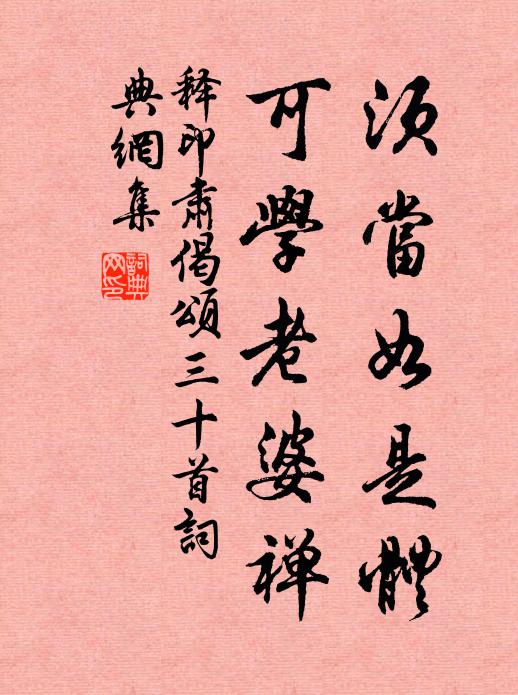 須當如是體
可學老婆禅
释印肅偈頌三十首詞
典網集
詞典網印